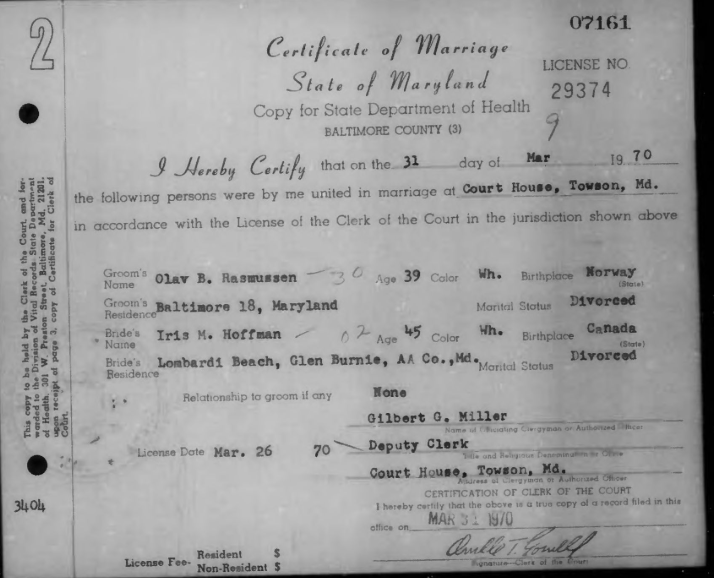 07161
2
Certificate of Marriage
State of Maryland
LICENSE NO.
29374
Copy for State Department of Health
BALTIMORE COUNTY (3)
9
I Hereby Certify that on the 31 day of Mar 19 70
the following persons were by me united in marriage at Court House, Towson, Md.
in accordance with the License of the Clerk of the Court in the jurisdiction shown above
Groom's Name Olav B. Rasmussen — 30 Age 39 Color Wh. Birthplace Norway
(State)
Groom's Residence Baltimore 18, Maryland Marital Status Divorced
Bride's Name Iris M. Hoffman — 02 Age 45 Color Wh. Birthplace Canada
(State)
Bride's Residence Lombardi Beach, Glen Burnie, AA Co.,Md. Marital Status Divorced
Relationship to groom if any None
Gilbert G. Miller
Name of Officiating Clergyman or Authorized Officer
License Date Mar. 26 70 Deputy Clerk
Title and Religious Denomination or Office
Court House, Towson, Md.
Address of Clergyman or Authorized Officer
CERTIFICATION OF CLERK OF THE COURT
I hereby certify that the above is a true copy of a record filed in this
office on MAR 31 1970
Orville T. Gosnell
Signature—Clerk of the Court
License Fee- Resident $
Non-Resident $
This copy to be held by the Clerk of the Court and for-
warded to the Division of Vital Records State Department
of Health, 301 W. Preston Street, Baltimore, Md. 21201,
upon receipt of page 3, copy of Certificate for Clerk of
Court.
3404